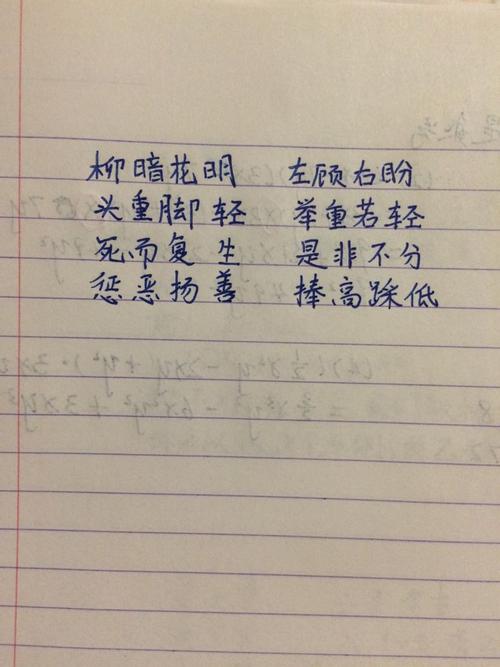 柳暗花明 左顾右盼
头重脚轻 举重若轻
死而复生 是非不分
惩恶扬善 捧高踩低